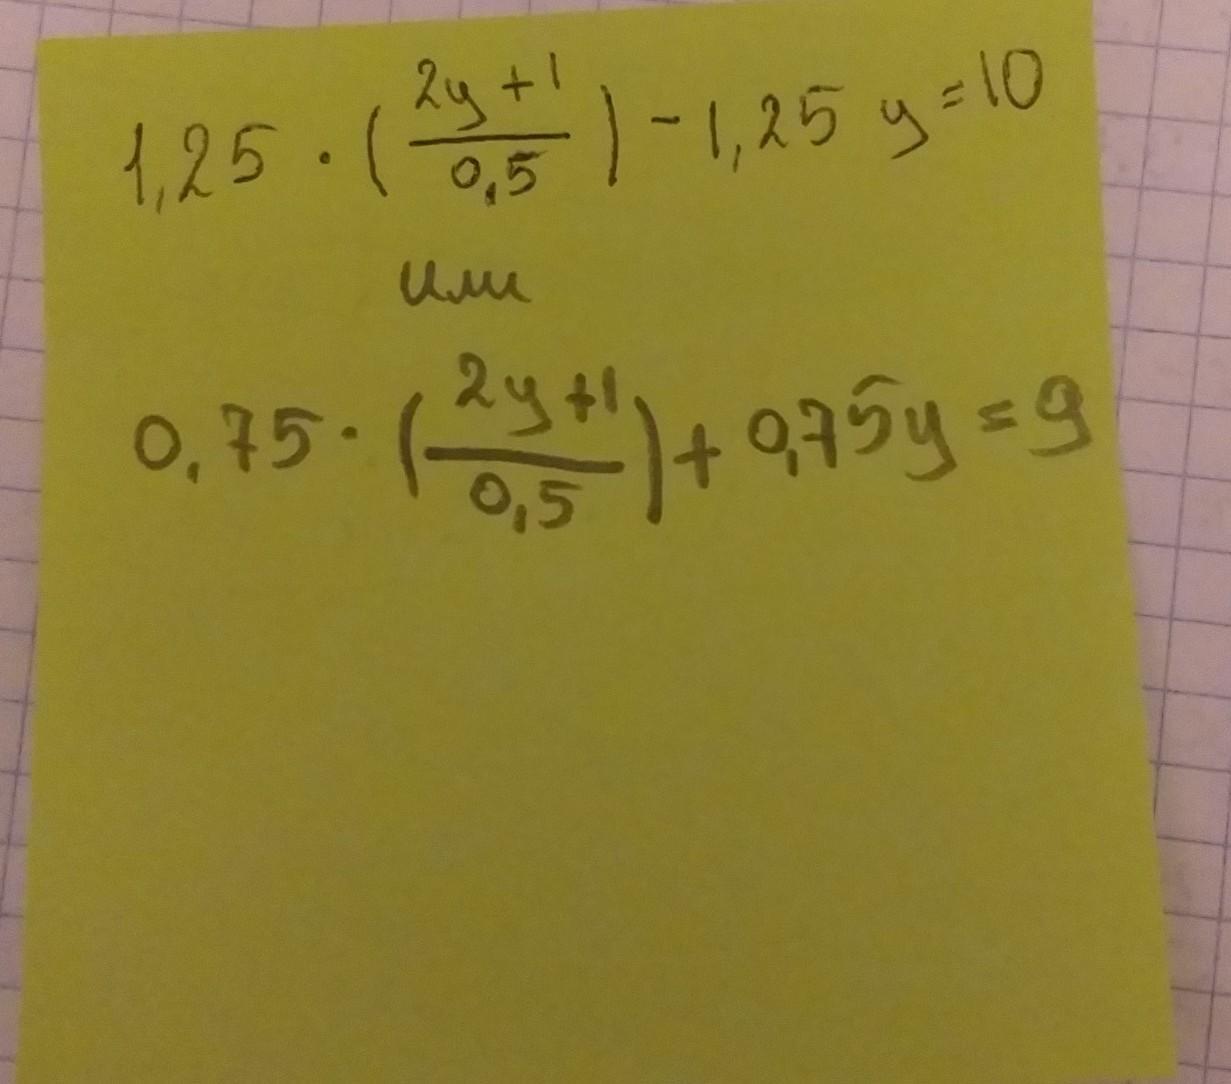 1,25 · (2y+1 / 0,5) - 1,25 y = 10
или
0,75 · (2y+1 / 0,5) + 0,75y = 9